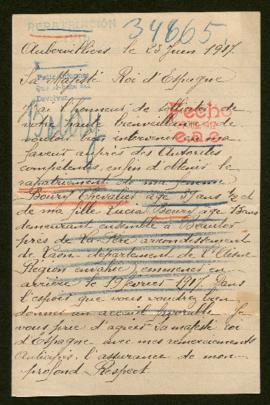 REPATRIACIÓN
34665
Aubervilliers le 23 Juin 1917
Sa Majesté Roi d'Espagne
J'ai l'honneur de
votre haute bienveillance de
vouloir intervenir en ma
faveur auprès des Autorités
compétentes, enfin d'obtenir le
rapatriement de ma femme
Boury Chevalier age ans et
de ma fille Lucia Boury age 13 ans
demeurant ensemble à Beautor
près de La Fère arrondissement
de Laon département de l'Aisne
Région envahie
arrière le 19 février 1917. Dans
l'espoir que vous voudrez bien
donner un accueil favorable Je
vous prie d'agréer sa majesté Roi
d'Espagne avec mes remerciements
Anticipés, l'assurance de mon
profond Respect